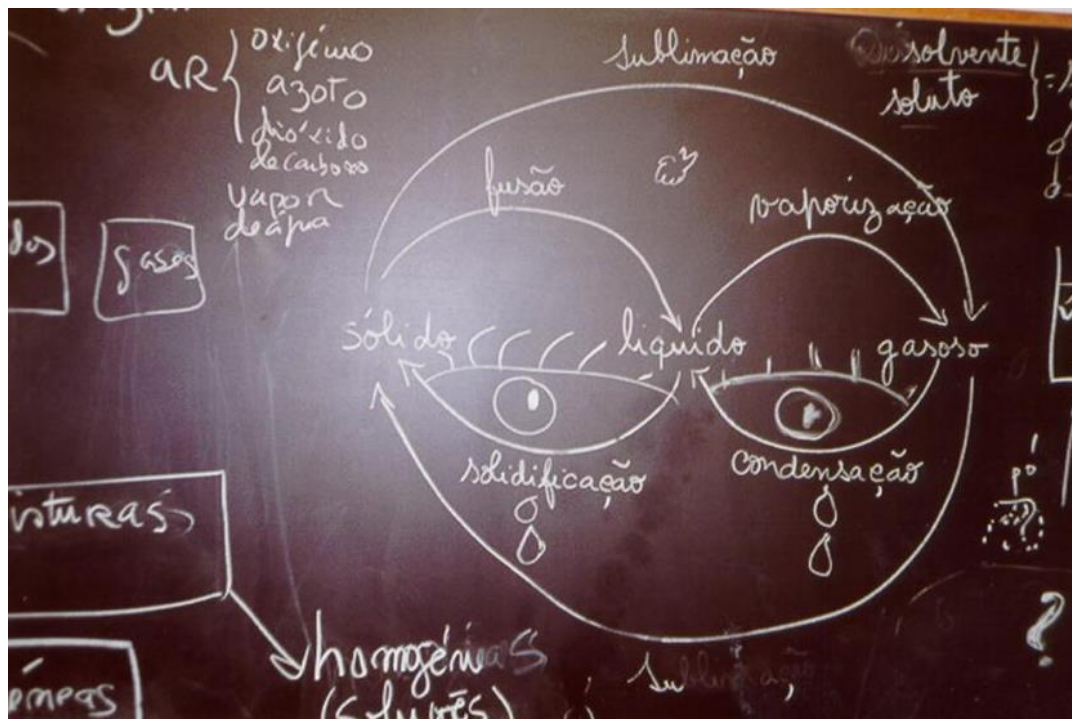 AR
oxigénio
azoto
dióxido
de carbono
vapor
de água
sublimação
dissolvente
soluto
=
fusão
vaporização
gases
sólido
líquido
gasoso
solidificação
condensação
pó
?
isturas
homogénias
(soluções)
sublimação